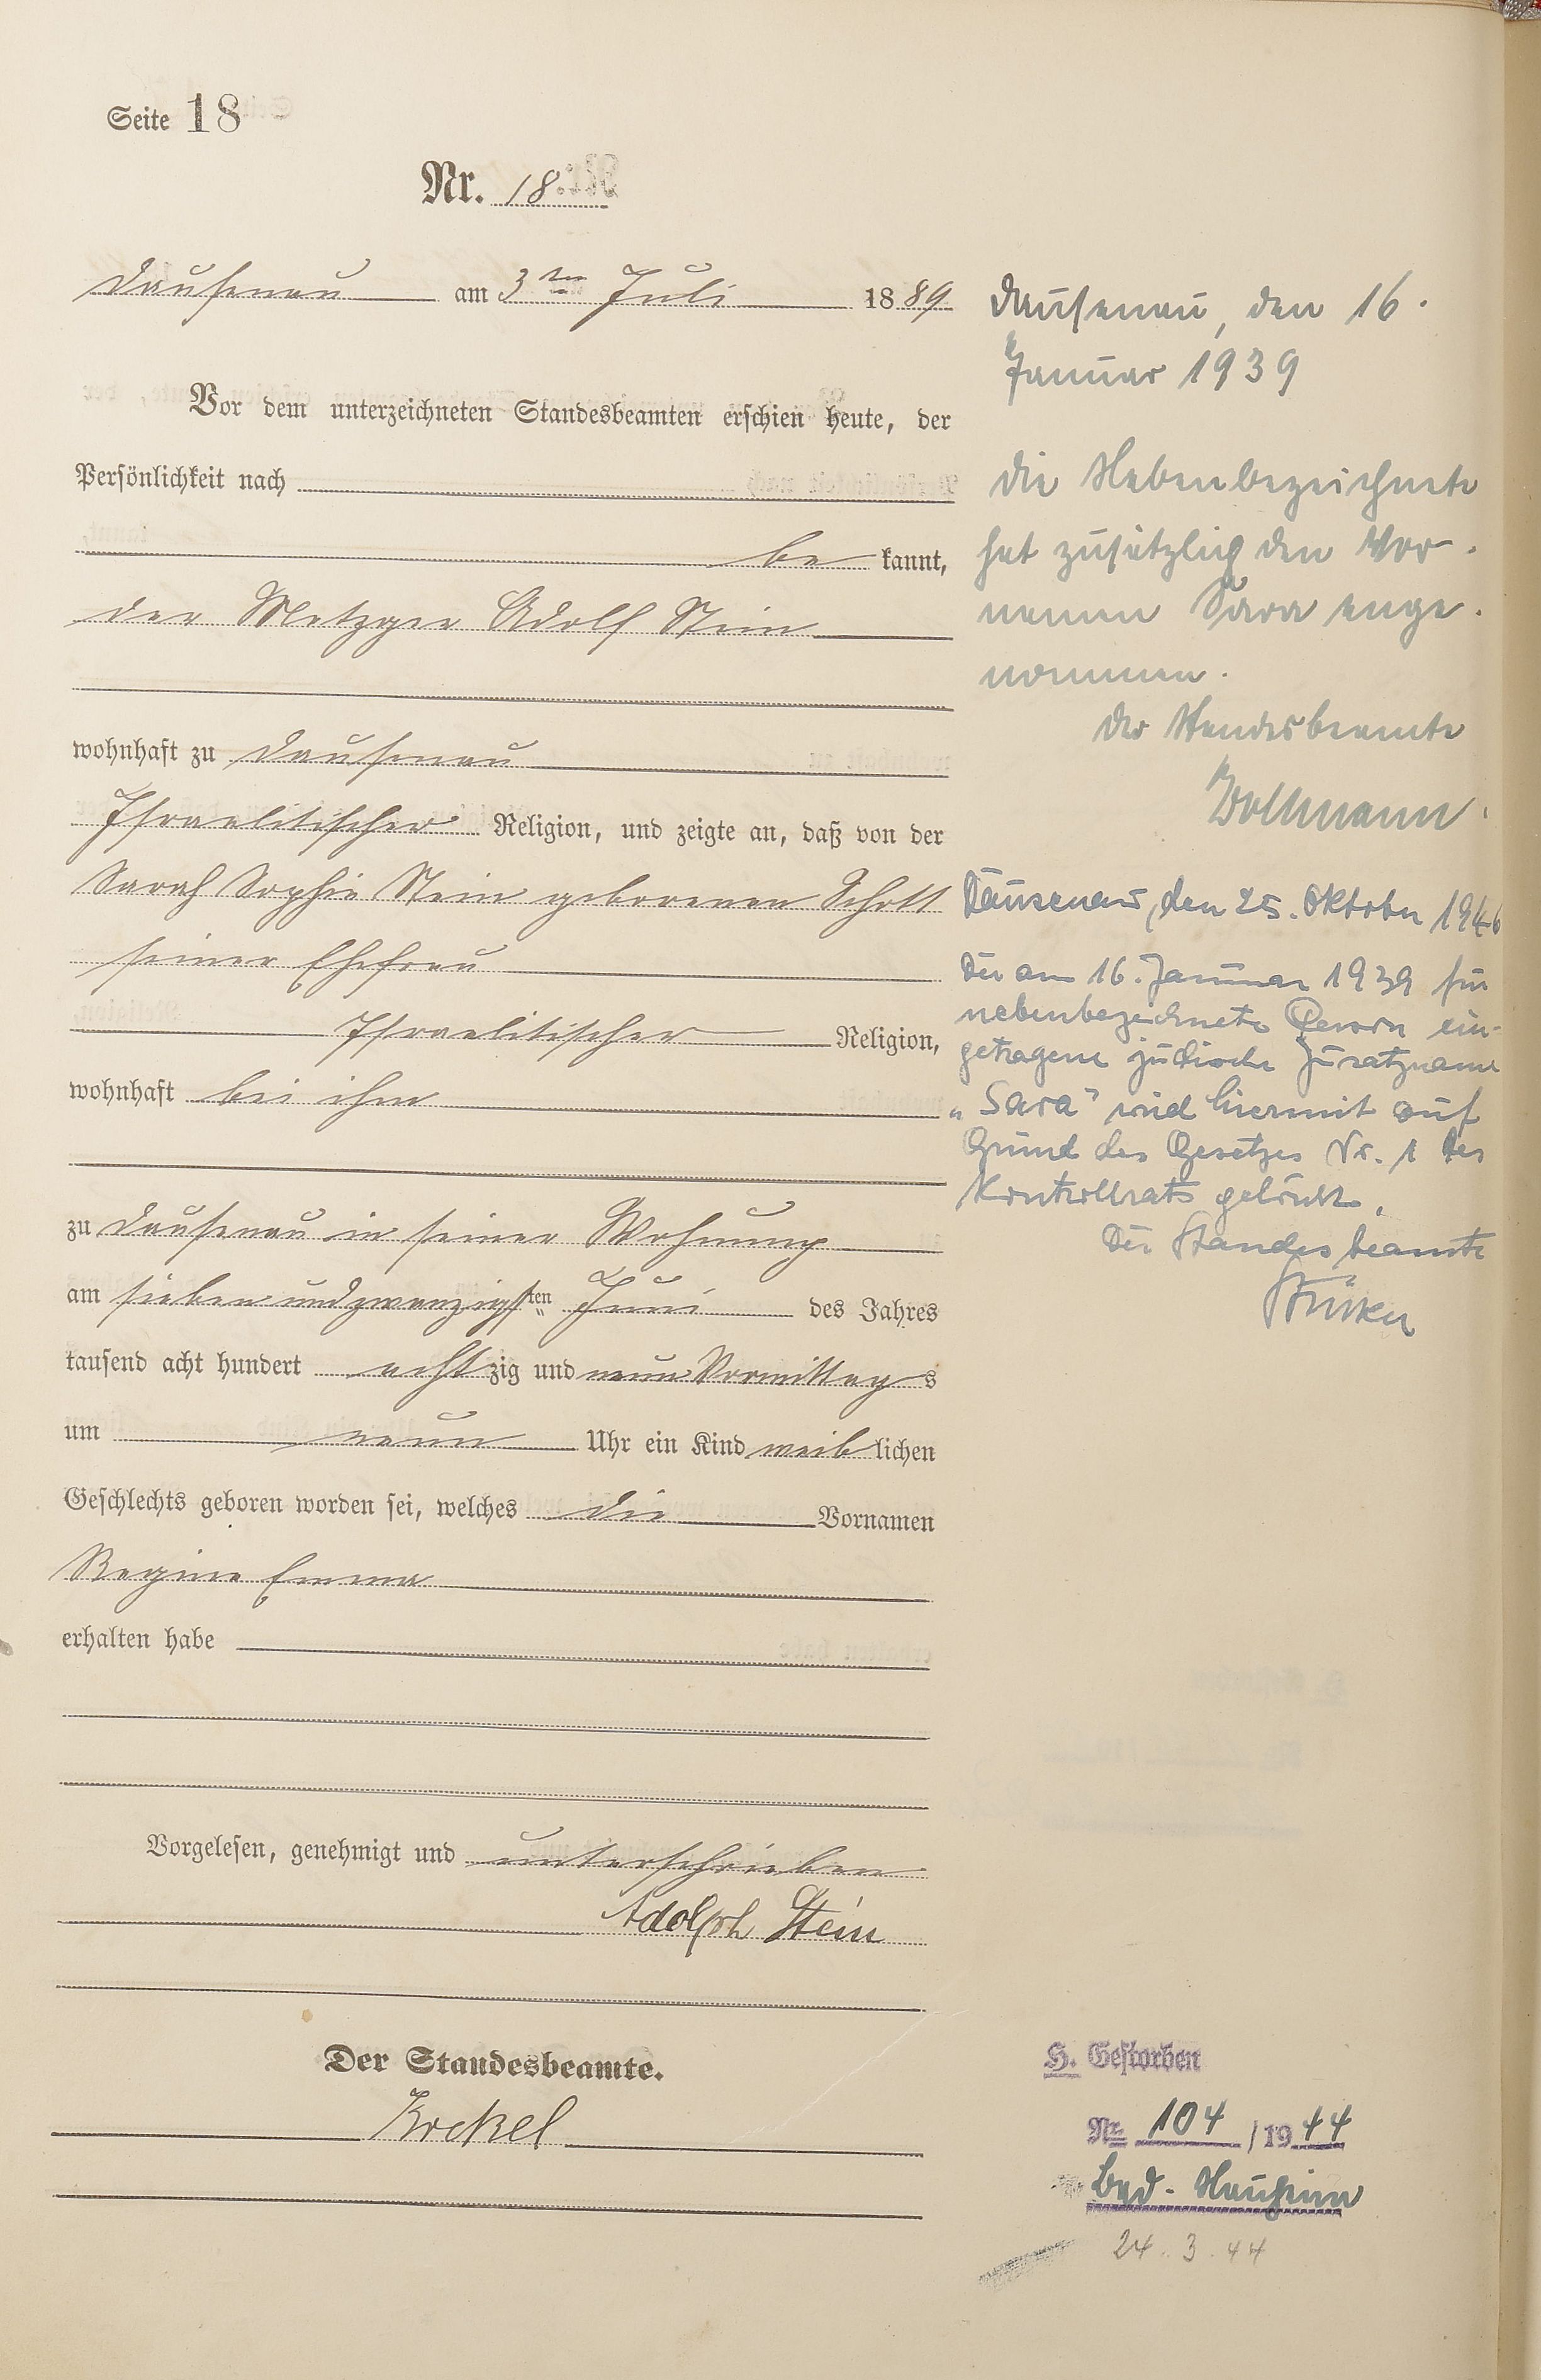 Seite 18
Nr. 18.
Dausenau am 3ten Juli 1889
Vor dem unterzeichneten Standesbeamten erschien heute, der
Persönlichkeit nach
be kannt,
der Metzger Adolf Stein
wohnhaft zu Dausenau
Israelitischer Religion, und zeigte an, daß von der
Sarah Sophie Stein geborenen Schott
seiner Ehefrau
Israelitischer Religion,
wohnhaft bei ihm
zu Dausenau in seiner Wohnung
am sieben und zwanzigsten Juni des Jahres
tausend acht hundert achtzig und neun Vormittags
um neun Uhr ein Kind weiblichen
Geschlechts geboren worden sei, welches die Vornamen
Regine Emma
erhalten habe
Vorgelesen, genehmigt und unterschrieben
Adolph Stein
Der Standesbeamte.
Krekel
Dausenau, den 16.
Januar 1939
Die Nebenbezeichnete
hat zusätzlich den Vor-
namen Sara ange-
nommen.
Der Standesbeamte
Dausenau, den 25. Oktober 1946
Der am 16. Januar 1939 für
nebenbezeichnete Person ein-
getragene jüdische Zusatzname
„Sara" wird hiermit auf
Grund des Gesetzes Nr. 1 des
Kontrollrats gelöscht.
Der Standesbeamte
H. Gestorben
Nr. 104 / 1944
Bad-Nauheim
24.3.44